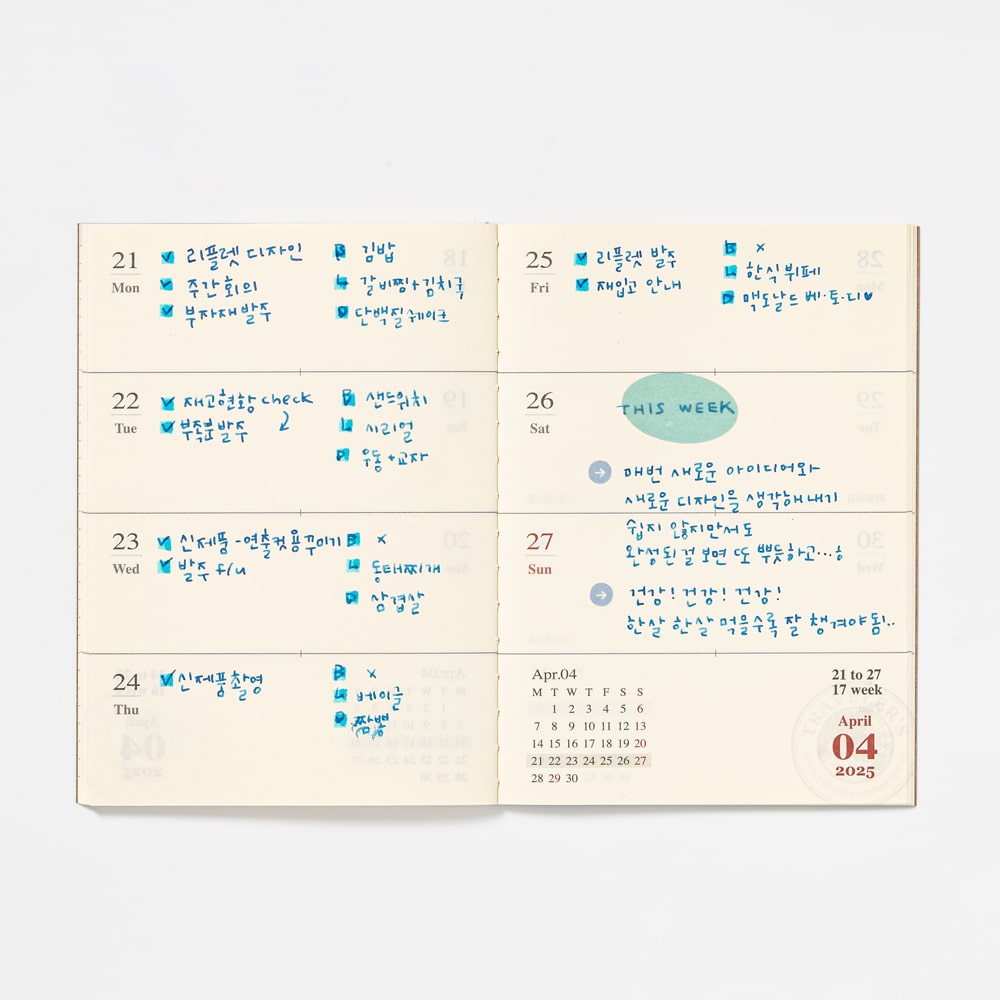 21
Mon
리플렛 디자인
주간회의
부자재 발주
B 김밥
L 갈비찜+김치국
D 단백질쉐이크
22
Tue
재고현황 check
부족분 발주
B 샌드위치
L 시리얼
D 우동+교자
23
Wed
신제품-연출컷용꾸미기
발주 f/u
B x
L 동태찌개
D 삼겹살
24
Thu
신제품촬영
B x
L 베이글
D 짬뽕
25
Fri
리플렛 발주
재입고 안내
B x
L 한식뷔페
D 맥도날드 베·토·디♥
26
Sat
THIS WEEK
매번 새로운 아이디어와
새로운 디자인을 생각해내기
27
Sun
쉽지 않지만서도
완성된 걸 보면 또 뿌듯하고...
건강! 건강! 건강!
한살 한살 먹을수록 잘 챙겨야 됨!..
Apr.04
M T W T F S S
1 2 3 4 5 6
7 8 9 10 11 12 13
14 15 16 17 18 19 20
21 22 23 24 25 26 27
28 29 30
21 to 27
17 week
April
04
2025